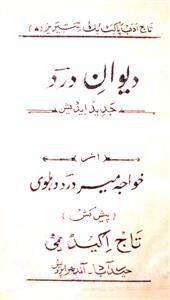 تاج ادب پاکٹ بک سیریز (۷)
دیوانِ درد
جدید ایڈیشن
از
خواجہ میر درد دہلوی
(پیش کش)
تاج اکیڈمی
حیدرآباد۔ آندھرا پردیش